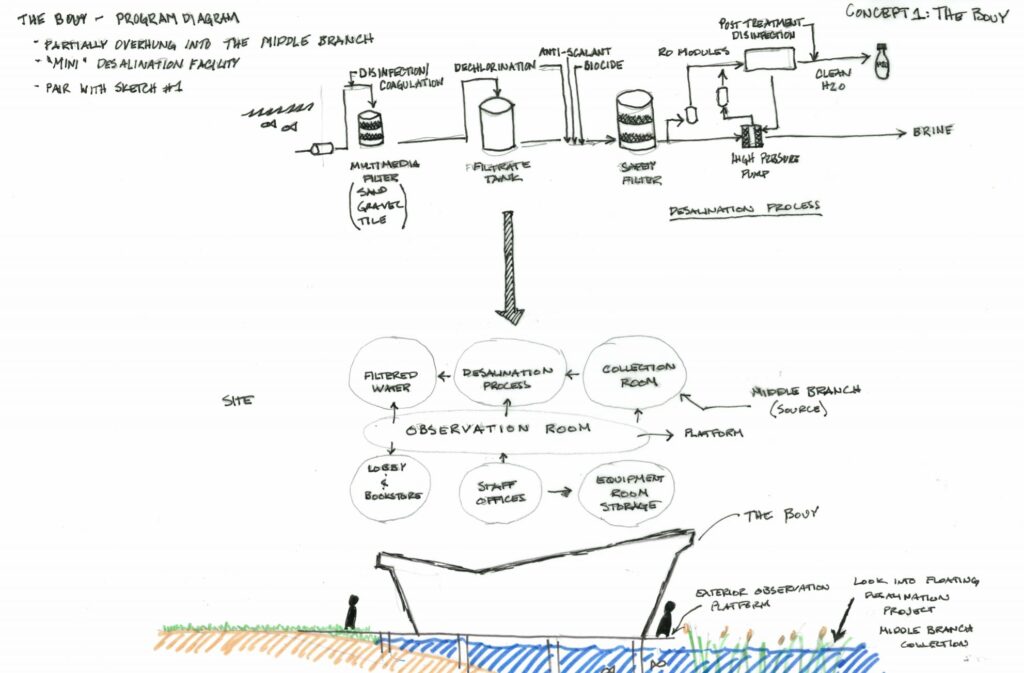 THE BOUY - PROGRAM DIAGRAM
- PARTIALLY OVERHUNG INTO THE MIDDLE BRANCH
- "MINI" DESALINATION FACILITY
- PAIR WITH SKETCH #1
CONCEPT 1: THE BOUY
DISINFECTION/
COAGULATION
DECHLORINATION
ANTI-SCALANT
BIOCIDE
RO MODULES
POST TREATMENT
DISINFECTION
CLEAN
H2O
BRINE
MULTIMEDIA
FILTER
(SAND
GRAVEL
TILE)
FILTRATE
TANK
SAFETY
FILTER
HIGH PRESSURE
PUMP
DESALINATION PROCESS
SITE
FILTERED
WATER
DESALINATION
PROCESS
COLLECTION
ROOM
MIDDLE BRANCH
(SOURCE)
OBSERVATION ROOM
PLATFORM
LOBBY
&
BOOKSTORE
STAFF
OFFICES
EQUIPMENT
ROOM
STORAGE
THE BOUY
EXTERIOR OBSERVATION
PLATFORM
LOOK INTO FLOATING
DESALINATION
PROJECT
MIDDLE BRANCH
COLLECTION